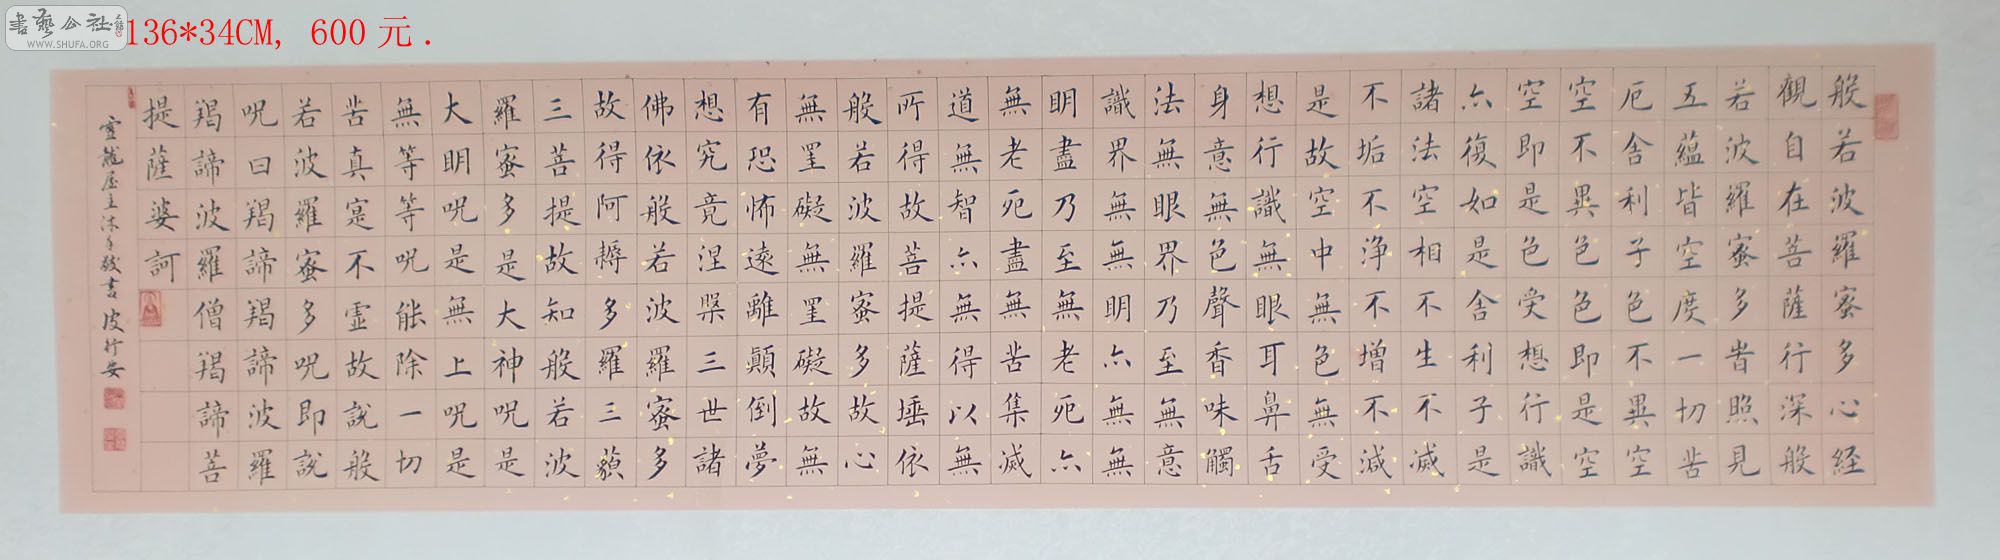 書藝公社
WWW.SHUFA.ORG
136*34CM, 600 元.
般若波羅蜜多心経
觀自在菩薩行深般
若波羅蜜多時照見
五蘊皆空度一切苦
厄舍利子色不異空
空不異色色即是空
空即是色受想行識
亦復如是舍利子是
諸法空相不生不滅
不垢不浄不增不減
是故空中無色無受
想行識無眼耳鼻舌
身意無色聲香味觸
法無眼界乃至無意
識界無無明亦無無
明盡乃至無老死亦
無老死盡無苦集滅
道無智亦無得以無
所得故菩提薩埵依
般若波羅蜜多故心
無罣礙無罣礙故無
有恐怖遠離顛倒夢
想究竟涅槃三世諸
佛依般若波羅蜜多
故得阿耨多羅三藐
三菩提故知般若波
羅蜜多是大神咒是
大明咒是無上咒是
無等等咒能除一切
苦真寔不虛故說般
若波羅蜜多咒即說
咒曰羯諦羯諦波羅
羯諦波羅僧羯諦菩
提薩婆訶
屋主沐手敬書